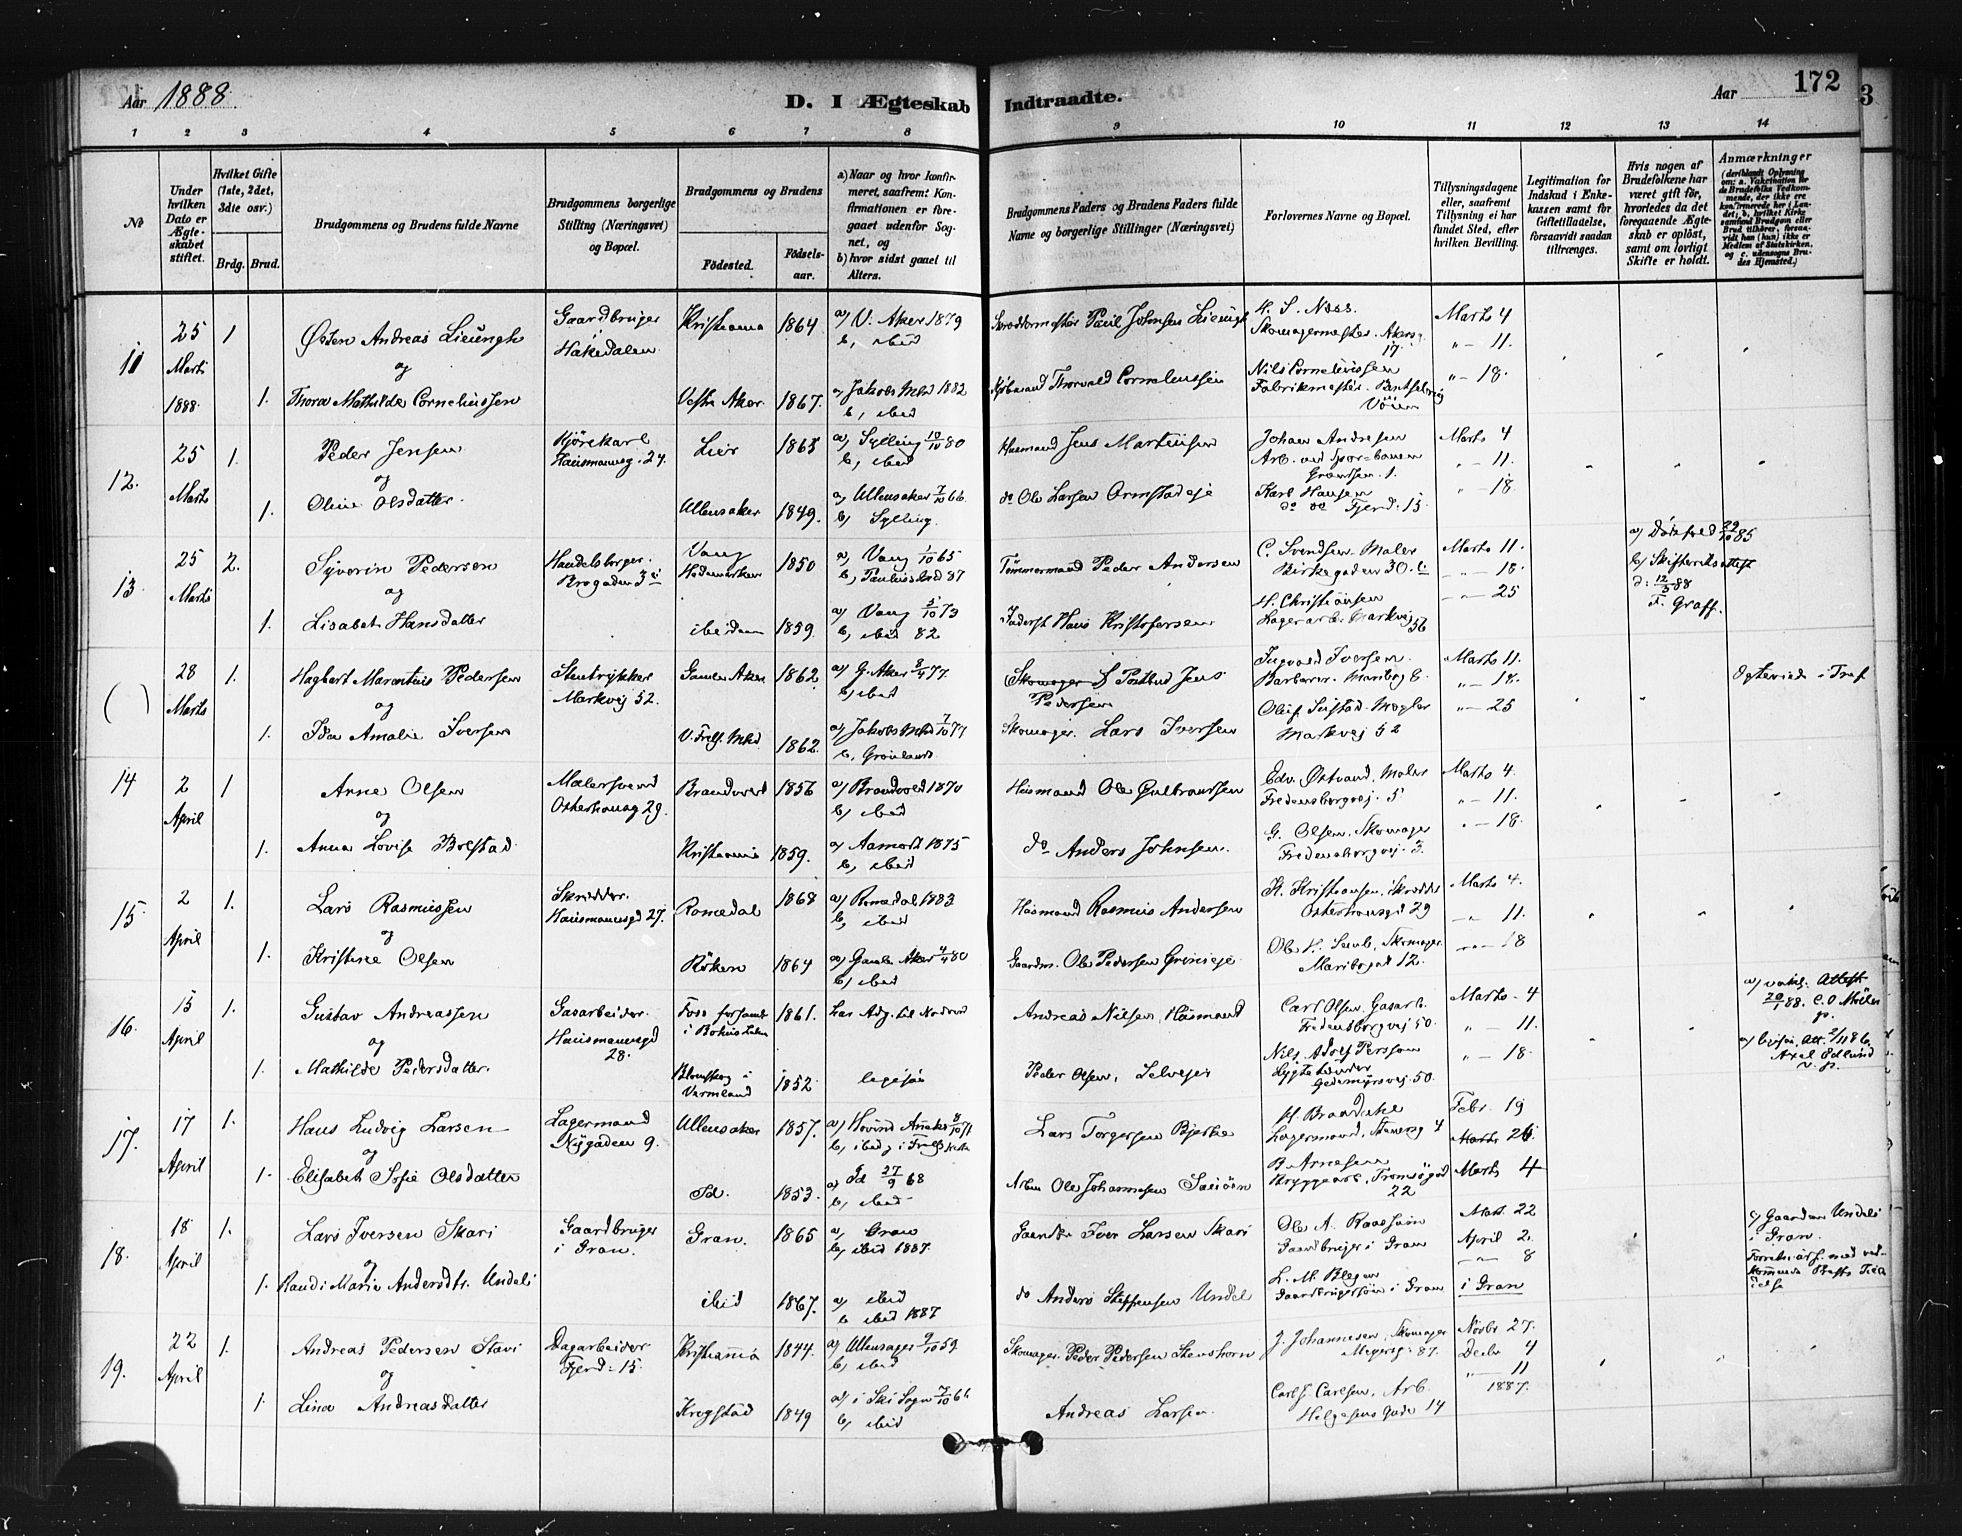 Aar 1888.
D. I Ægteskab Indtraadte.
Aar
172
3
1 2 3 4 5 6 7 8 9 10 11 12 13 14
No
Under hvilken Dato er Ægteskabet stiftet.
Hvilket Gifte (1ste, 2det, 3die osv.)
Brdg. Brud.
Brudgommens og Brudens fulde Navne
Brudgommens borgerlige Stilling (Næringsvei) og Bopæl.
Brudgommens og Brudens
Fødested.
Fødselsaar.
a) Naar og hvor konfirmeret, saafremt Konfirmationen er foregaaet udenfor Sognet, og
b) hvor sidst gaaet til Alters.
Brudgommens Faders og Brudens Faders fulde Navne og borgerlige Stillinger (Næringsvei)
Forlovernes Navne og Bopæl.
Tillysningsdagene eller, saafremt Tillysning ei har fundet Sted, efter hvilken Bevilling.
Legitimation for Indskud i Enkekassen samt for Giftetilladelse, forsaavidt saadan tiltrænges.
Hvis nogen af Brudefolkene har været gift før, hvorledes da det foregaaende Ægteskab er opløst, samt om lovligt Skifte er holdt.
Anmærkninger
11 25 Marts 1888. 1
Østen Andreas Lieungh
Gaardbruger Hakedalen
Kristiania 1864.
a) V. Aker 1879
b, ibid
Skræddermester Paul Johnsen Lieungh
H. S. Næss. Skomagermester. Akersg. 17.
Marts 4
" - 11.
" - 18.
og
1. Thora Mathilde Corneliussen
Vestre Aker 1867.
a, Jakobs Mkd 1882
b, ibid
Thorvald Corneliussen
Nils Corneliussen
Fabrikmester.
12. 25 Marts 1.
Peder Jensen
Kjørekarl Hausmannsg. 24.
Lier 1865
a, Sylling 10/10 80
b, ibid
Husmand Jens Martinsen
Johan Andresen
Arb. ved Sporbanen
Grændsen. 1.
Marts 4
" - 11.
" - 18.
og
1. Oline Olsdatter.
Ullensaker 1849.
a) Ullensaker 7/10 66
b) Sylling.
do Ole Larsen Ormstadeje
Karl Hansen
do do Fjerd: 15
13. 25 Marts 2.
Syverin Pedersen
Handelsborger.
Brogaden 3
Vang Hedemarken 1850
a) Vang 1/10 65
b, Paulus Mkd 87
Tømmermand Peder Andersen
C. Svendsen Maler
Birkegaden 30.
Marts 11.
" - 18.
" - 25
a) Dødsfald 29/10 85
b) Skifteretsattest
d: 12/3 88
F. Graff.
og
1. Lisabet Hansdatter
ibidem 1859.
a) Vang 5/10 73
b, ibid 82
Inderst Hans Kristofersen
H. Christiansen
Lagerarb. Markvej 56
( ) 28 Marts 1.
Hagbart Marentius Pedersen
Stentrykker
Markvej 52.
Gamle Aker 1862
a) G. Aker 8/4 77.
b, ibid
Skomager Postbud Jens Pedersen
Ingvald Iversen.
Barberer. Maribog 8.
Marts 11.
" - 18.
" - 25
Ogteviede i Tref
og
1. Ida Amalie Iversen
V. Frels. Mkd 1862.
a) Jakobs Mkd 7/10 77
b, Grønlands
Skomager. Lars Iversen
Oluf Sustad. Mægler
Markvej 52
14 2 April 1
Arne Olsen
Malersvend
Osterhausg 29.
Brandvold 1856
a) Brandvold 1870
b) ibid
Husmand Ole Gulbrandsen
Edv. Østvand, Maler
Fredensborgvej. 5
Marts 4.
" - 11.
" - 18.
og
1. Anna Lovise Bolstad
Kristiania 1859.
a) Aamodt 1875
b, ibid
do Anders Johnsen.
G. Olsen. Skomager
Fredensborgvej. 3.
15. 2 April 1.
Lars Rasmussen
Skrædder.
Hausmannsgd 27.
Romedal 1868
a) Romedal 1883
b, ibid
Husmand Rasmus Andersen
K. Kristiansen, Skrædder
Osterhausgd 29
Marts 4.
" - 11.
" - 18
og
1. Kristine Olsen
Røken 1864
a) Gamle Aker 4/4 80
b) ibid
Gaardm. Ole Pedersen Grinieje
Ole H. Sunb, Skomager.
Maribogd 12.
16. 15 April 1.
Gustav Andreassen
Gasarbeider.
Hausmannsgd 28.
Foss forsaml. i Bohus Lehn 1861.
har Adg. til Nadverd
Andreas Nilsen, Husmand
Carl Olsen Gasarb.
Fredensborgvej 50.
Marts 4
" - 11.
" - 18.
og
1. Mathilde Pedersdatter.
Blomskog i Vermland 1852
ligesaa
Peder Olsen, Selvejer
Nils Adolf Persson
Lygtetænder
Gedemyrsvej 50.
17. 17 April 1.
Hans Ludvig Larsen
Lagermand
Nygaden 9.
Ullensaker 1857.
a) Hovind Anneks 8/10 71
b, ibid, i Frels Kirke
Lars Torgersen Bjerke
H. Brandube
Lagermand, Stenersg 4
Febr. 19
Marts 26
Marts 4
og
1. Elisabet Sofie Olsdatter
Id. 1853.
a) Id 27/9 68
b, ibid
Arbm Ole Johannesen
B Arnesen
Bryggearb, Tromsøgd 22
18. 18 April 1.
Lars Iversen Skari
Gaardbruger i Gran.
Gran. 1865
a, Gran
b, ibid 1887.
Gaardbr Iver Larsen Skari
Ole A. Raassum
Gaardbruger i Gran
Marts 22
April 2.
" - 8
i Gran
c/ Gaarden Undeli i Gran.
og
1. Randi Marie Andersdtr. Undeli
ibid 1867.
a) ibid
b ibid 1887
do Anders Steffensen Undel
L. M. Blegen
Gaardbrugersøn i Gran
19. 22 April 1.
Andreas Pedersen Stavi
Dagarbeider
Fjerd: 15.
Kristiania 1844.
a) Ullensager 9/10 59
b, ibid
Skomager. Peder Pedersen Stenshorn
J. Johannesen, Skomager
Meyersg. 87.
Novbr 27.
Decbr 4
" - 11
1887.
og
1. Lina Andreasdatter
Krogstad 1849
a) i Ski Sogn 7/10 66
b, ibid
Andreas Larsen.
Carl J. Carlsen, Arb.
Helgesens Gade 14